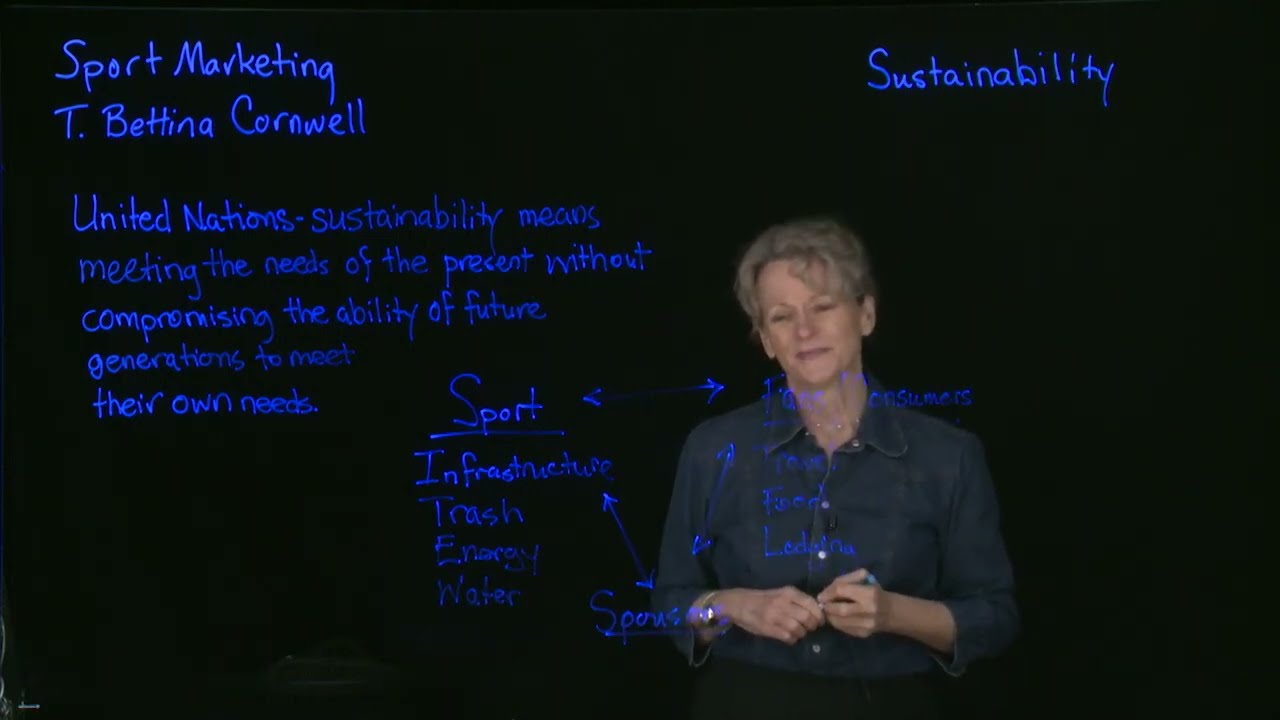 Sport Marketing
T. Bettina Cornwell
Sustainability
United Nations - sustainability means
meeting the needs of the present without
compromising the ability of future
generations to meet
their own needs.
Sport
Infrastructure
Trash
Energy
Water
Fans/Consumers
Travel
Food
Lodging
Sponsors